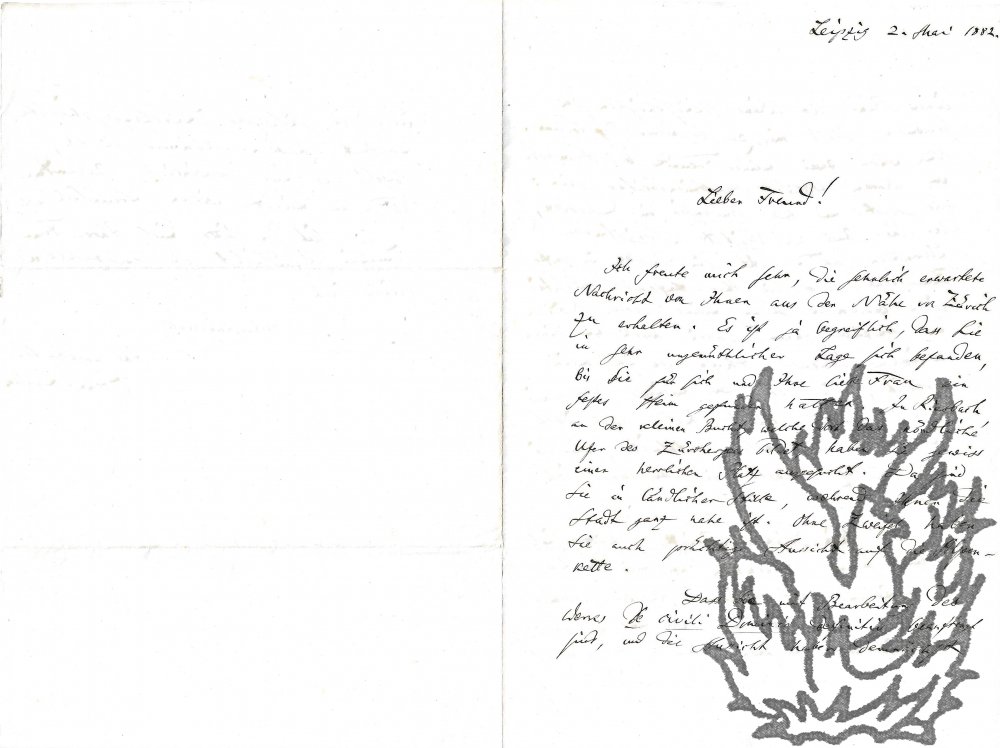 Leipzig 2. Mai 1882.
Lieber Freund!
Ich freute mich sehr, die sehnlich erwartete
Nachricht von Ihnen aus der Nähe von Zürich
zu erhalten. Es ist ja begreiflich, dass Sie
in sehr ungemüthlicher Lage sich befanden,
bis Sie für sich und Ihre liebe Frau ein
festes Heim gefunden hatten. In Riesbach
an der kleinen Bucht, welche dort das nördliche
Ufer des Zürchersees bildet haben Sie gewiss
einen herrlichen Platz ausgesucht. Da sind
Sie in ländlicher Stille, während Ihnen die
Stadt ganz nahe ist. Ohne Zweifel haben
Sie auch prächtige Aussicht auf die Alpen-
kette.
Dass Sie mit Bearbeitung des
Werkes De civili Dominio definitiv beauftragt
sind, und die Aussicht haben